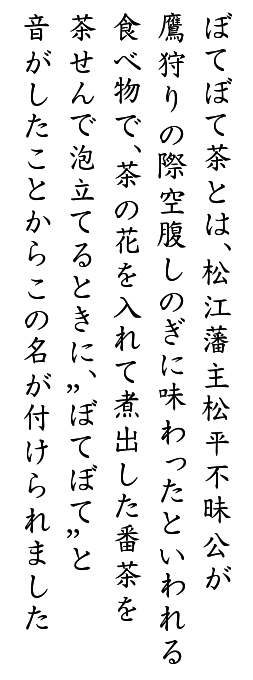 ぼてぼて茶とは、松江藩主松平不昧公が
鷹狩りの際空腹しのぎに味わったといわれる
食べ物で、茶の花を入れて煮出した番茶を
茶せんで泡立てるときに、”ぼてぼて”と
音がしたことからこの名が付けられました